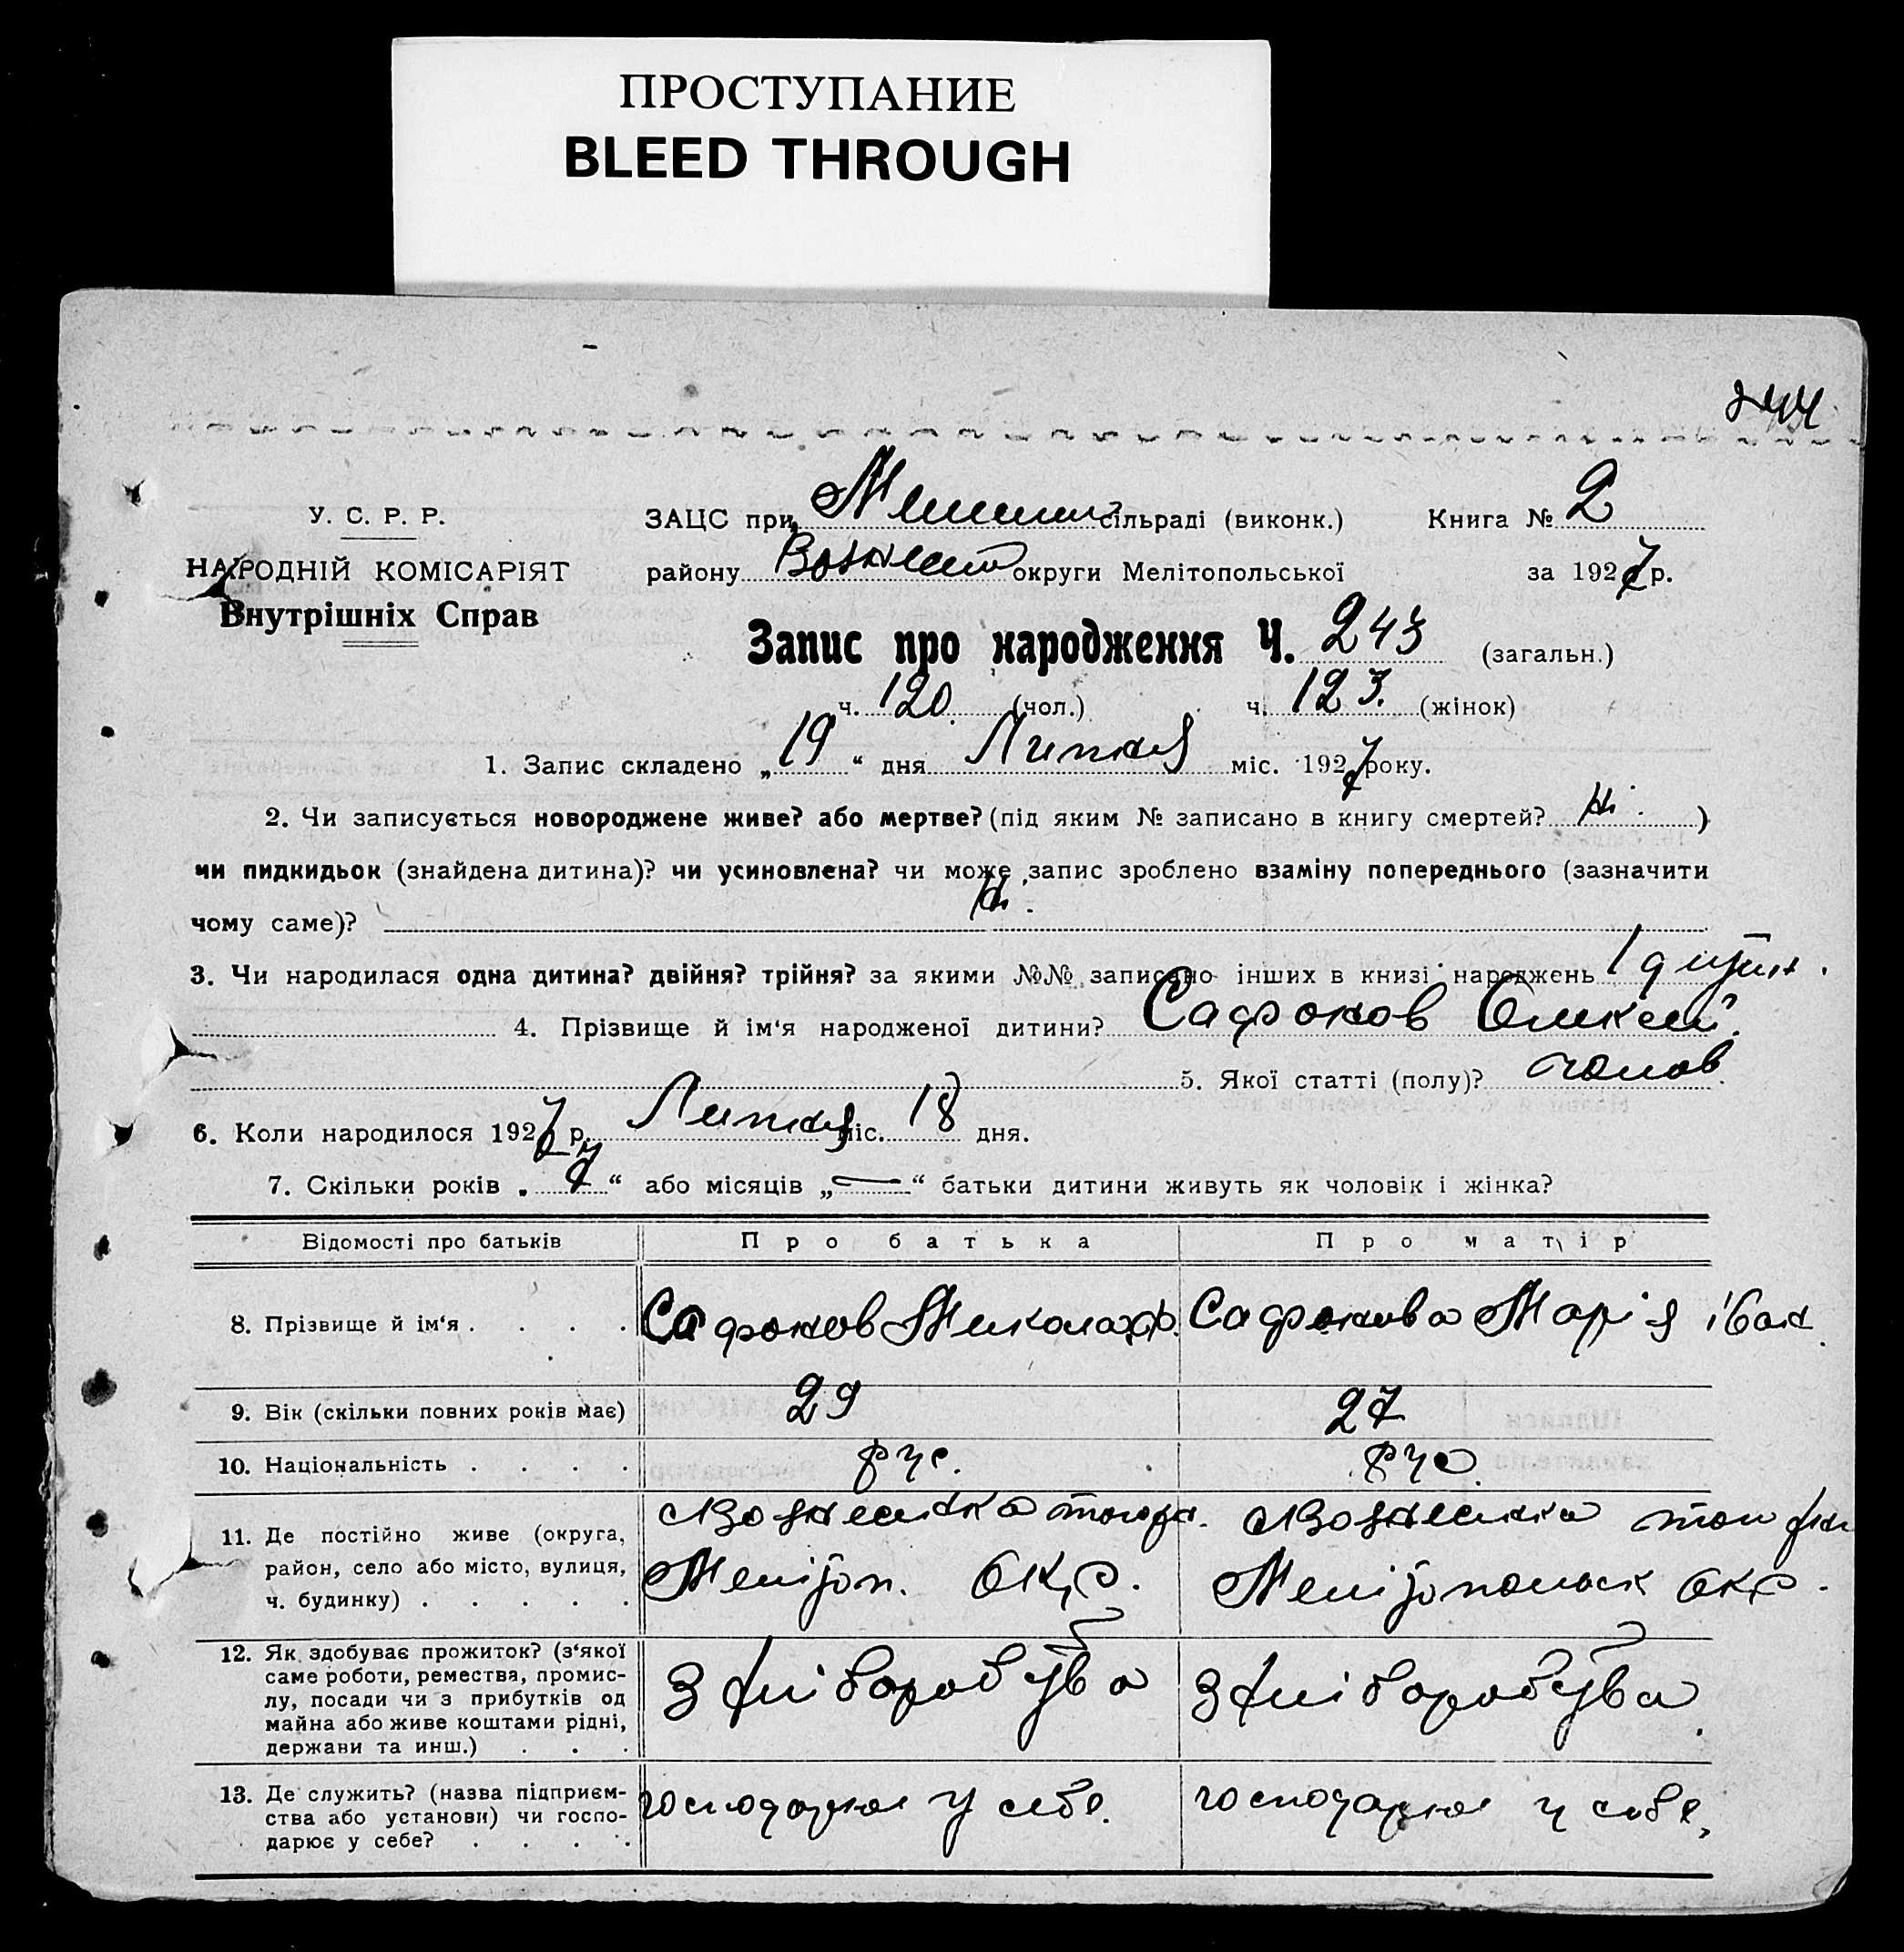 ПРОСТУПАНИЕ
BLEED THROUGH
244
У. С. Р. Р. ЗАЦС при сільраді (виконк.) Книга № 2
НАРОДНІЙ КОМІСАРІЯТ району округи Мелітопольської за 1927 р.
Внутрішніх Справ
Запис про народження Ч. 243 (загальн.)
ч. 120 (чол.) ч. 123. (жінок)
1. Запис складено „19“ дня Липня міс. 1927 року.
2. Чи записується новороджене живе? або мертве? (під яким № записано в книгу смертей? Ні.)
чи пидкидьок (знайдена дитина)? чи усиновлена? чи може запис зроблено взаміну попереднього (зазначити
чому саме)? Ні.
3. Чи народилася одна дитина? двійня? трійня? за якими №№ записано інших в книзі народжень 1 дитин.
4. Прізвище й ім'я народженої дитини? Сафонов Олексій.
5. Якої статті (полу)? чолов.
6. Коли народилося 1927 р. Липня міс. 18 дня.
7. Скільки років „7“ або місяців „—“ батьки дитини живуть як чоловік і жінка?
Відомості про батьків Про батька Про матір
8. Прізвище й ім'я . . . . Сафонов Микола Сафонова Марія Іван.
9. Вік (скільки повних років має) 29 27
10. Національність . . . . рус. рус.
11. Де постійно живе (округа, Вознесенка Вознесенка
район, село або місто, вулиця, Меліто п. Окр. Мелітопольськ Окр.
ч. будинку) . . . . .
12. Як здобуває прожиток? (з'якої
саме роботи, ремества, промис-
лу, посади чи з прибутків од з хліборобства з хліборобства
майна або живе коштами рідні,
держави та инш.) . . .
13. Де служить? (назва підприєм-
ства або установи) чи госпо- господарює у себе. господарює у себе.
дарює у себе? . . . .